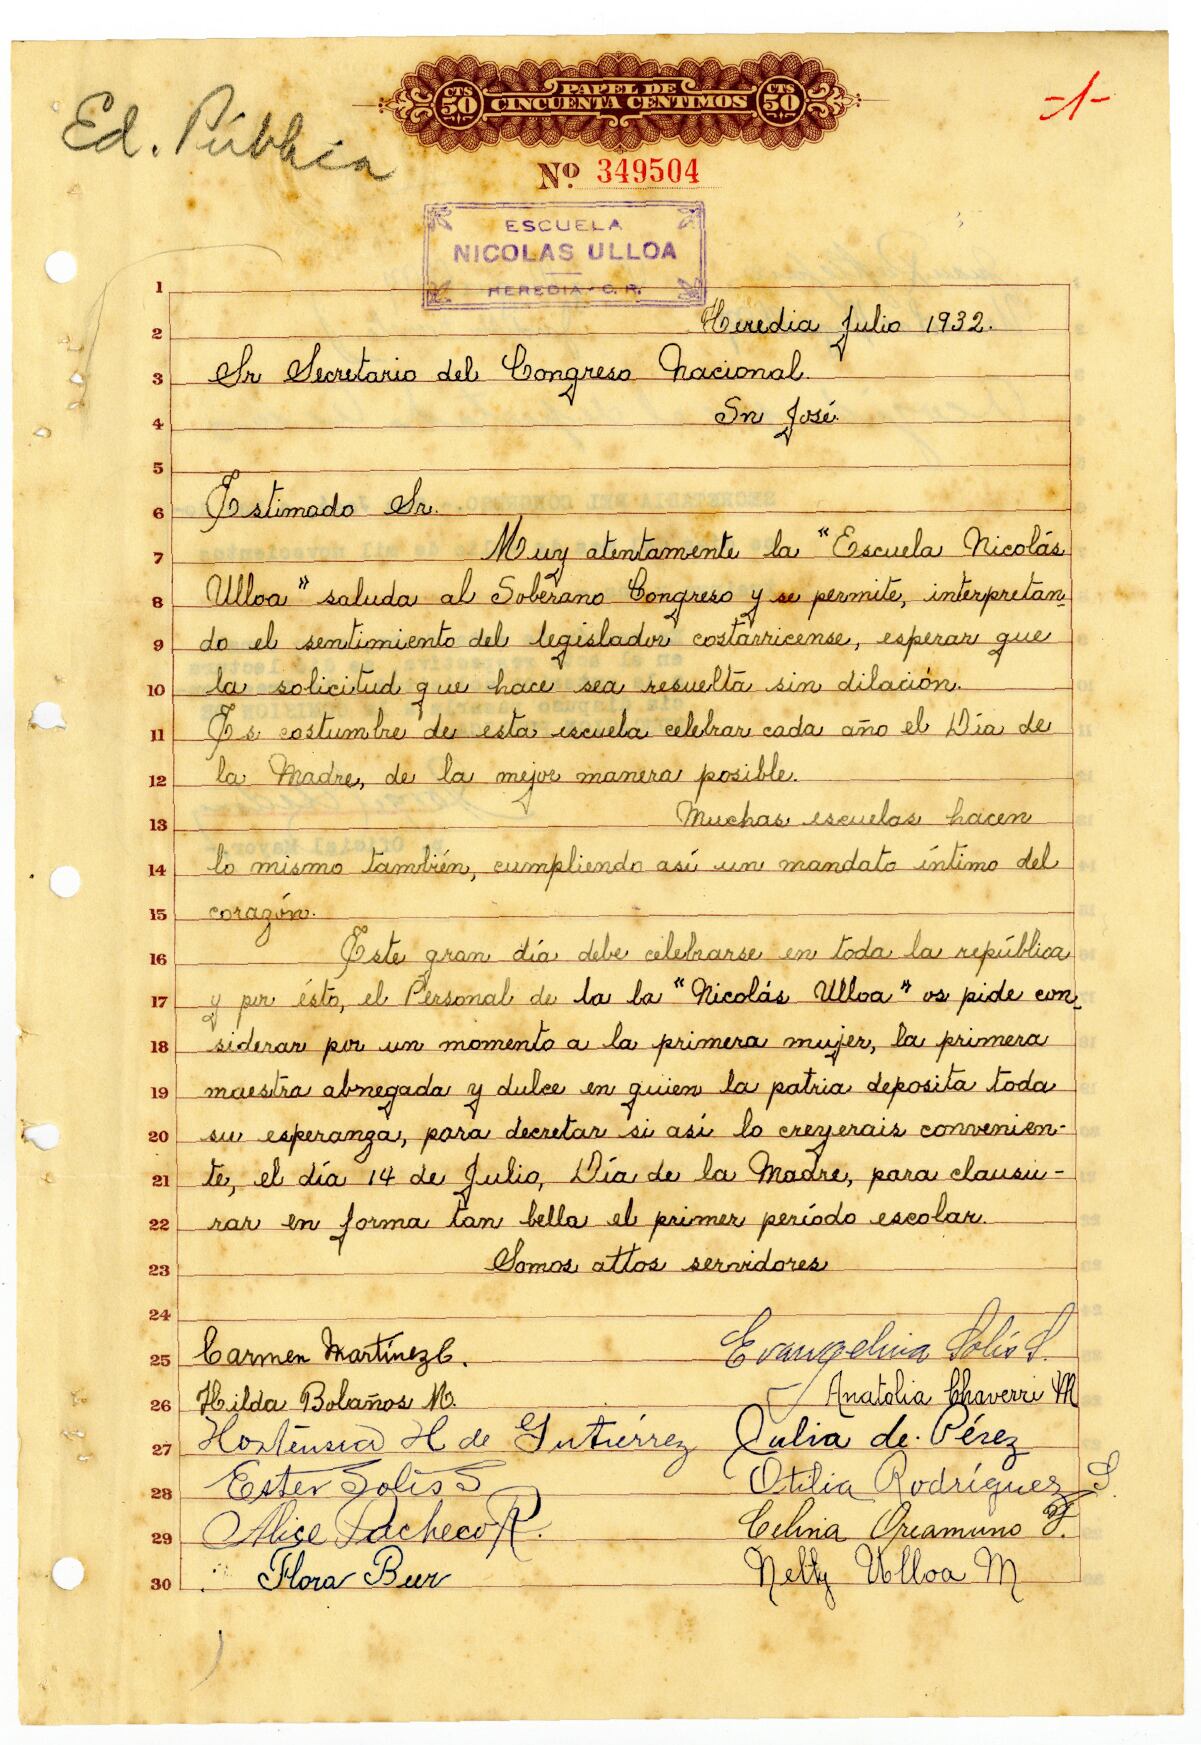 Ed. Pública
CTS 50 PAPEL DE CINCUENTA CENTIMOS CTS 50
-1-
Nº 349504
ESCUELA
NICOLAS ULLOA
HEREDIA - C. R.
1
2 Heredia Julio 1932.
3 Sr Secretario del Congreso Nacional.
4 Sn José.
5
6 Estimado Sr.
7 Muy atentamente la "Escuela Nicolás
8 Ulloa" saluda al Soberano Congreso y se permite, interpretan-
9 do el sentimiento del legislador costarricense, esperar que
10 la solicitud que hace sea resuelta sin dilación.
11 Es costumbre de esta escuela celebrar cada año el Día de
12 la Madre, de la mejor manera posible.
13 Muchas escuelas hacen
14 lo mismo también, cumpliendo así un mandato íntimo del
15 corazón.
16 Este gran día debe celebrarse en toda la república
17 y por ésto, el Personal de la la "Nicolás Ulloa" os pide con-
18 siderar por un momento a la primera mujer, la primera
19 maestra abnegada y dulce en quien la patria deposita toda
20 su esperanza, para decretar si así lo creyerais convenien-
21 te, el día 14 de Julio, Día de la Madre, para clausu-
22 rar en forma tan bella el primer período escolar.
23 Somos attos servidores
24
25 Carmen Martínez C. Evangelina Solís S.
26 Hilda Bolaños M. Anatolia Chaverri M
27 Hortensia H de Gutiérrez Julia de Pérez
28 Ester Solís S Otilia Rodríguez S.
29 Alice Pacheco R. Celina Oreamuno F.
30 Flora Beer Nelly Ulloa M